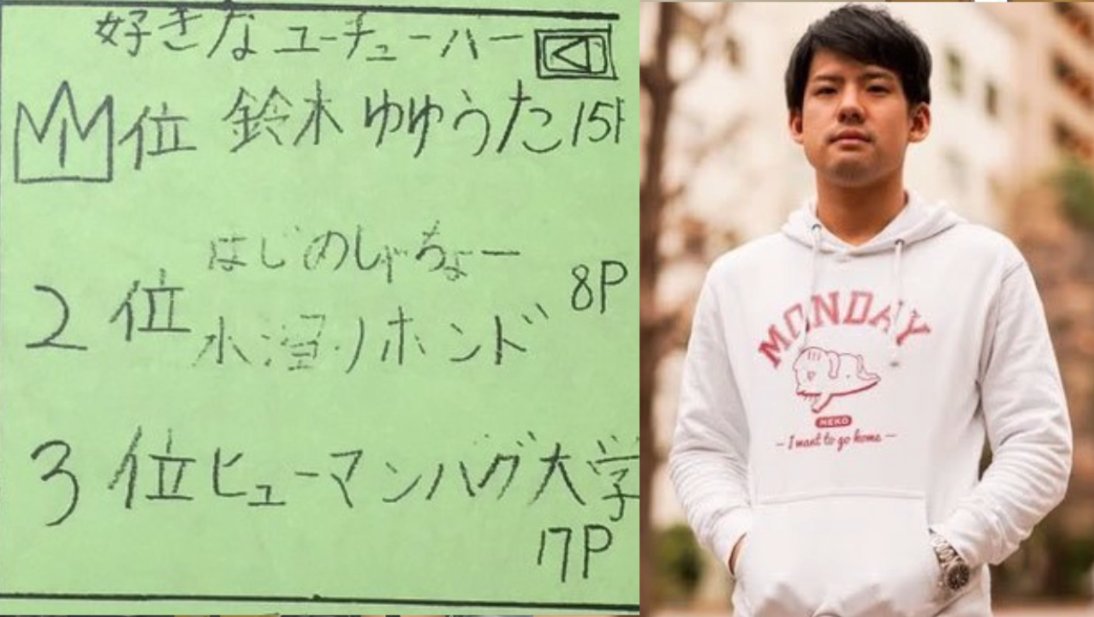 好きなユーチューバー
1位 鈴木ゆゆうた 15
はじめしゃちょー
2位 水溜りボンド 8P
3位 ヒューマンバグ大学
17P
MONDAY
NEKO
- I want to go home -